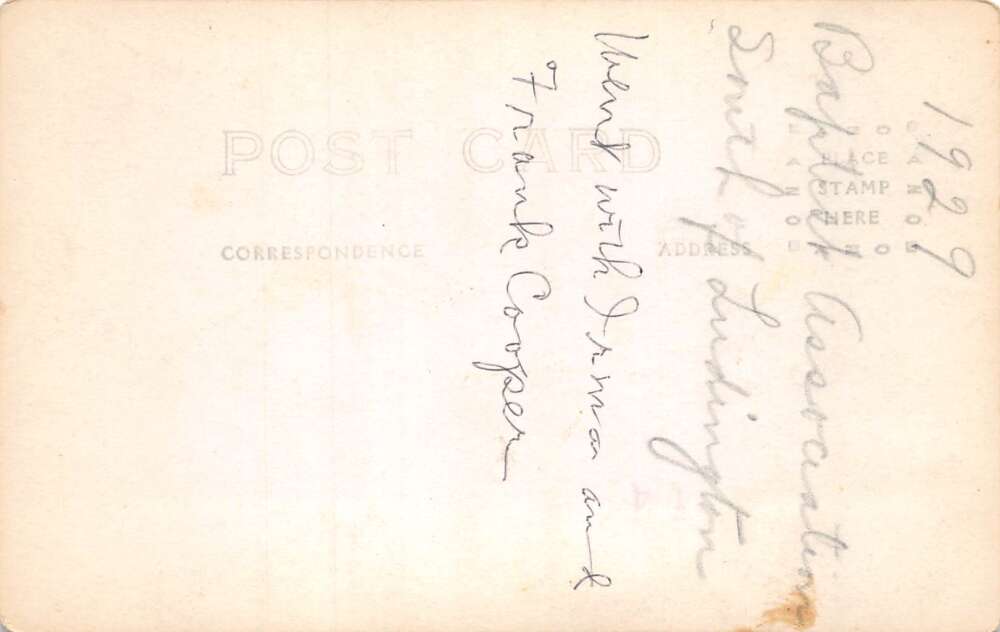 1929
Baptist Association
South of Ludington
Went with Irma and
Frank Cooper
POST CARD
CORRESPONDENCE
ADDRESS
PLACE
STAMP
HERE